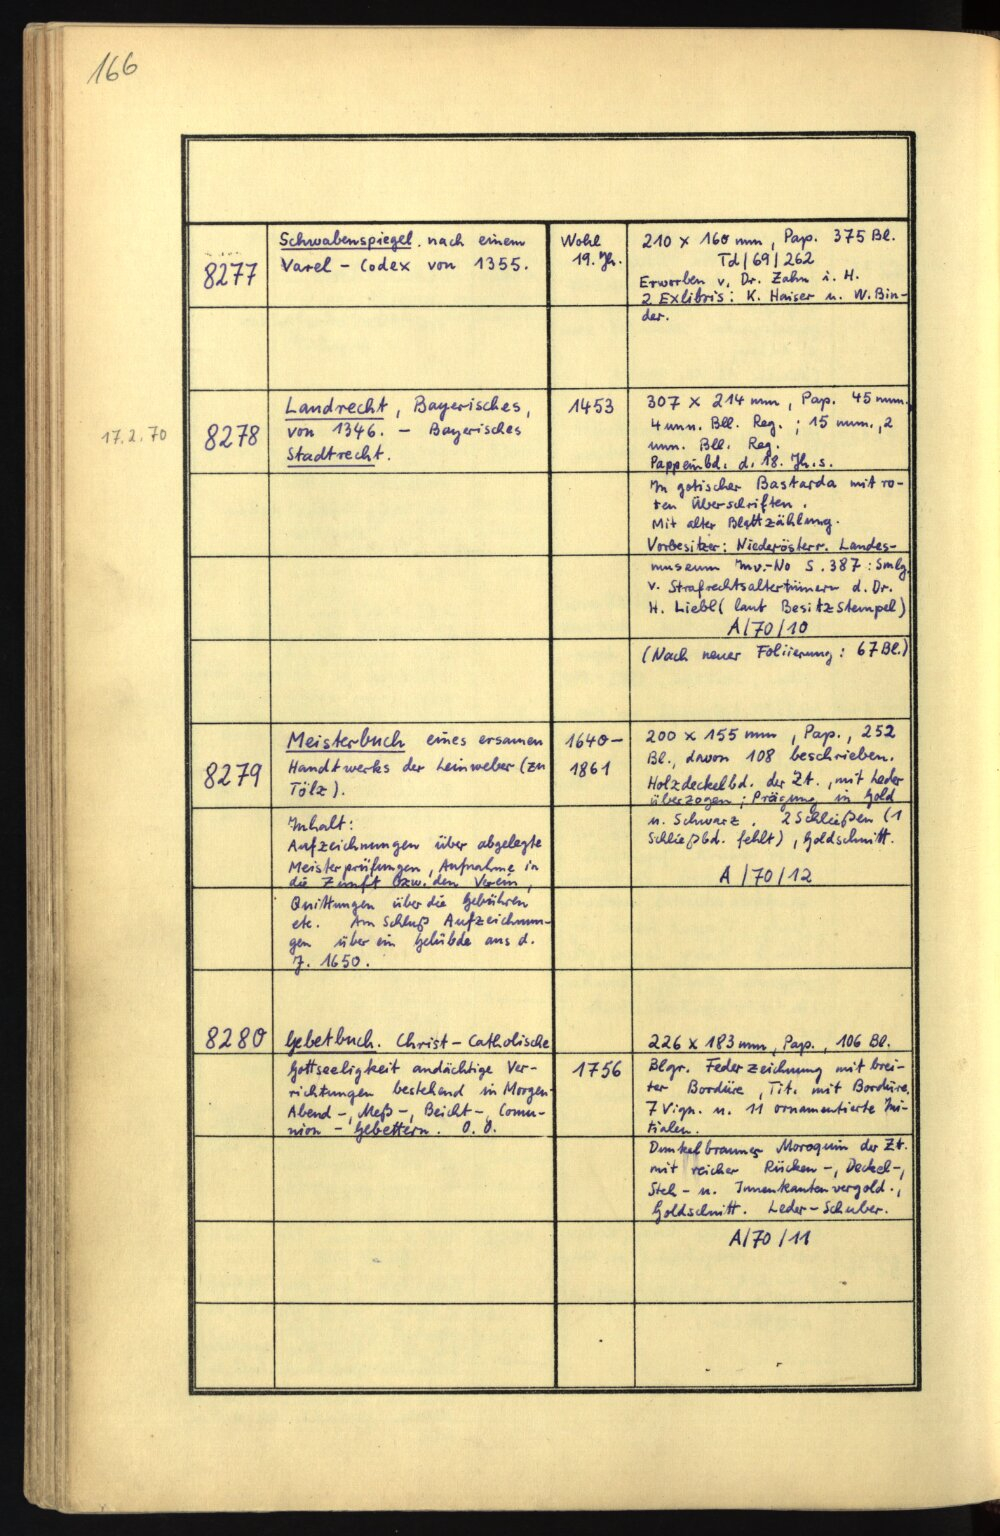 166
8277
Schwabenspiegel nach einem
Varel - Codex von 1355.
Wohl
19. Jh.
210 x 160 mm, Pap. 375 Bl.
Td/69/262
Erworben v. Dr. Zahn i. H.
2 Exlibris: K. Haiser u. W. Bin-
der.
17.2.70
8278
Landrecht, Bayerisches,
von 1346. - Bayerisches
Stadtrecht.
1453
307 x 214 mm, Pap. 45 num.
4 unn. Bll. Reg.; 15 num., 2
unn. Bll. Reg.
Pappeinbd. d. 18. Jh.s.
In gotischer Bastarda mit ro-
ten Überschriften.
Mit alter Blattzählung.
Vorbesitzer: Niederösterr. Landes-
museum Inv.-No S. 387: Smlg.
v. Strafrechtsaltertümern d. Dr.
H. Liebl (laut Besitzstempel)
A/70/10
(Nach neuer Foliierung: 67 Bl.)
8279
Meisterbuch eines ersamen
Handtwerks der Leinweber (zu
Tölz).
1640-
1861
Inhalt:
Aufzeichnungen über abgelegte
Meisterprüfungen, Aufnahme in
die Zunft bzw. den Verein,
Quittungen über die Gebühren
etc. Am Schluß Aufzeichnun-
gen über ein Gelübde aus d.
J. 1650.
200 x 155 mm, Pap., 252
Bl., davon 108 beschrieben.
Holzdeckelbd. der Zt., mit Leder
überzogen; Prägung in Gold
u. Schwarz. 2 Schließen (1
Schließbd. fehlt), Goldschnitt.
A/70/12
8280
Gebetbuch. Christ-Catholische
Gottseeligkeit andächtige Ver-
richtungen bestehend in Morgen-
Abend-, Meß-, Beicht-, Comu-
nion - Gebettern. O. O.
1756
226 x 183 mm, Pap., 106 Bl.
Blgr. Federzeichnung mit brei-
ter Bordüre, Tit. mit Bordüre,
7 Vign. u. 11 ornamentierte Ini-
tialen.
Dunkelbrauner Moroquin der Zt.
mit reicher Rücken-, Deckel-,
Steh- u. Innenkantenvergold.,
Goldschnitt. Leder-Schuber.
A/70/11